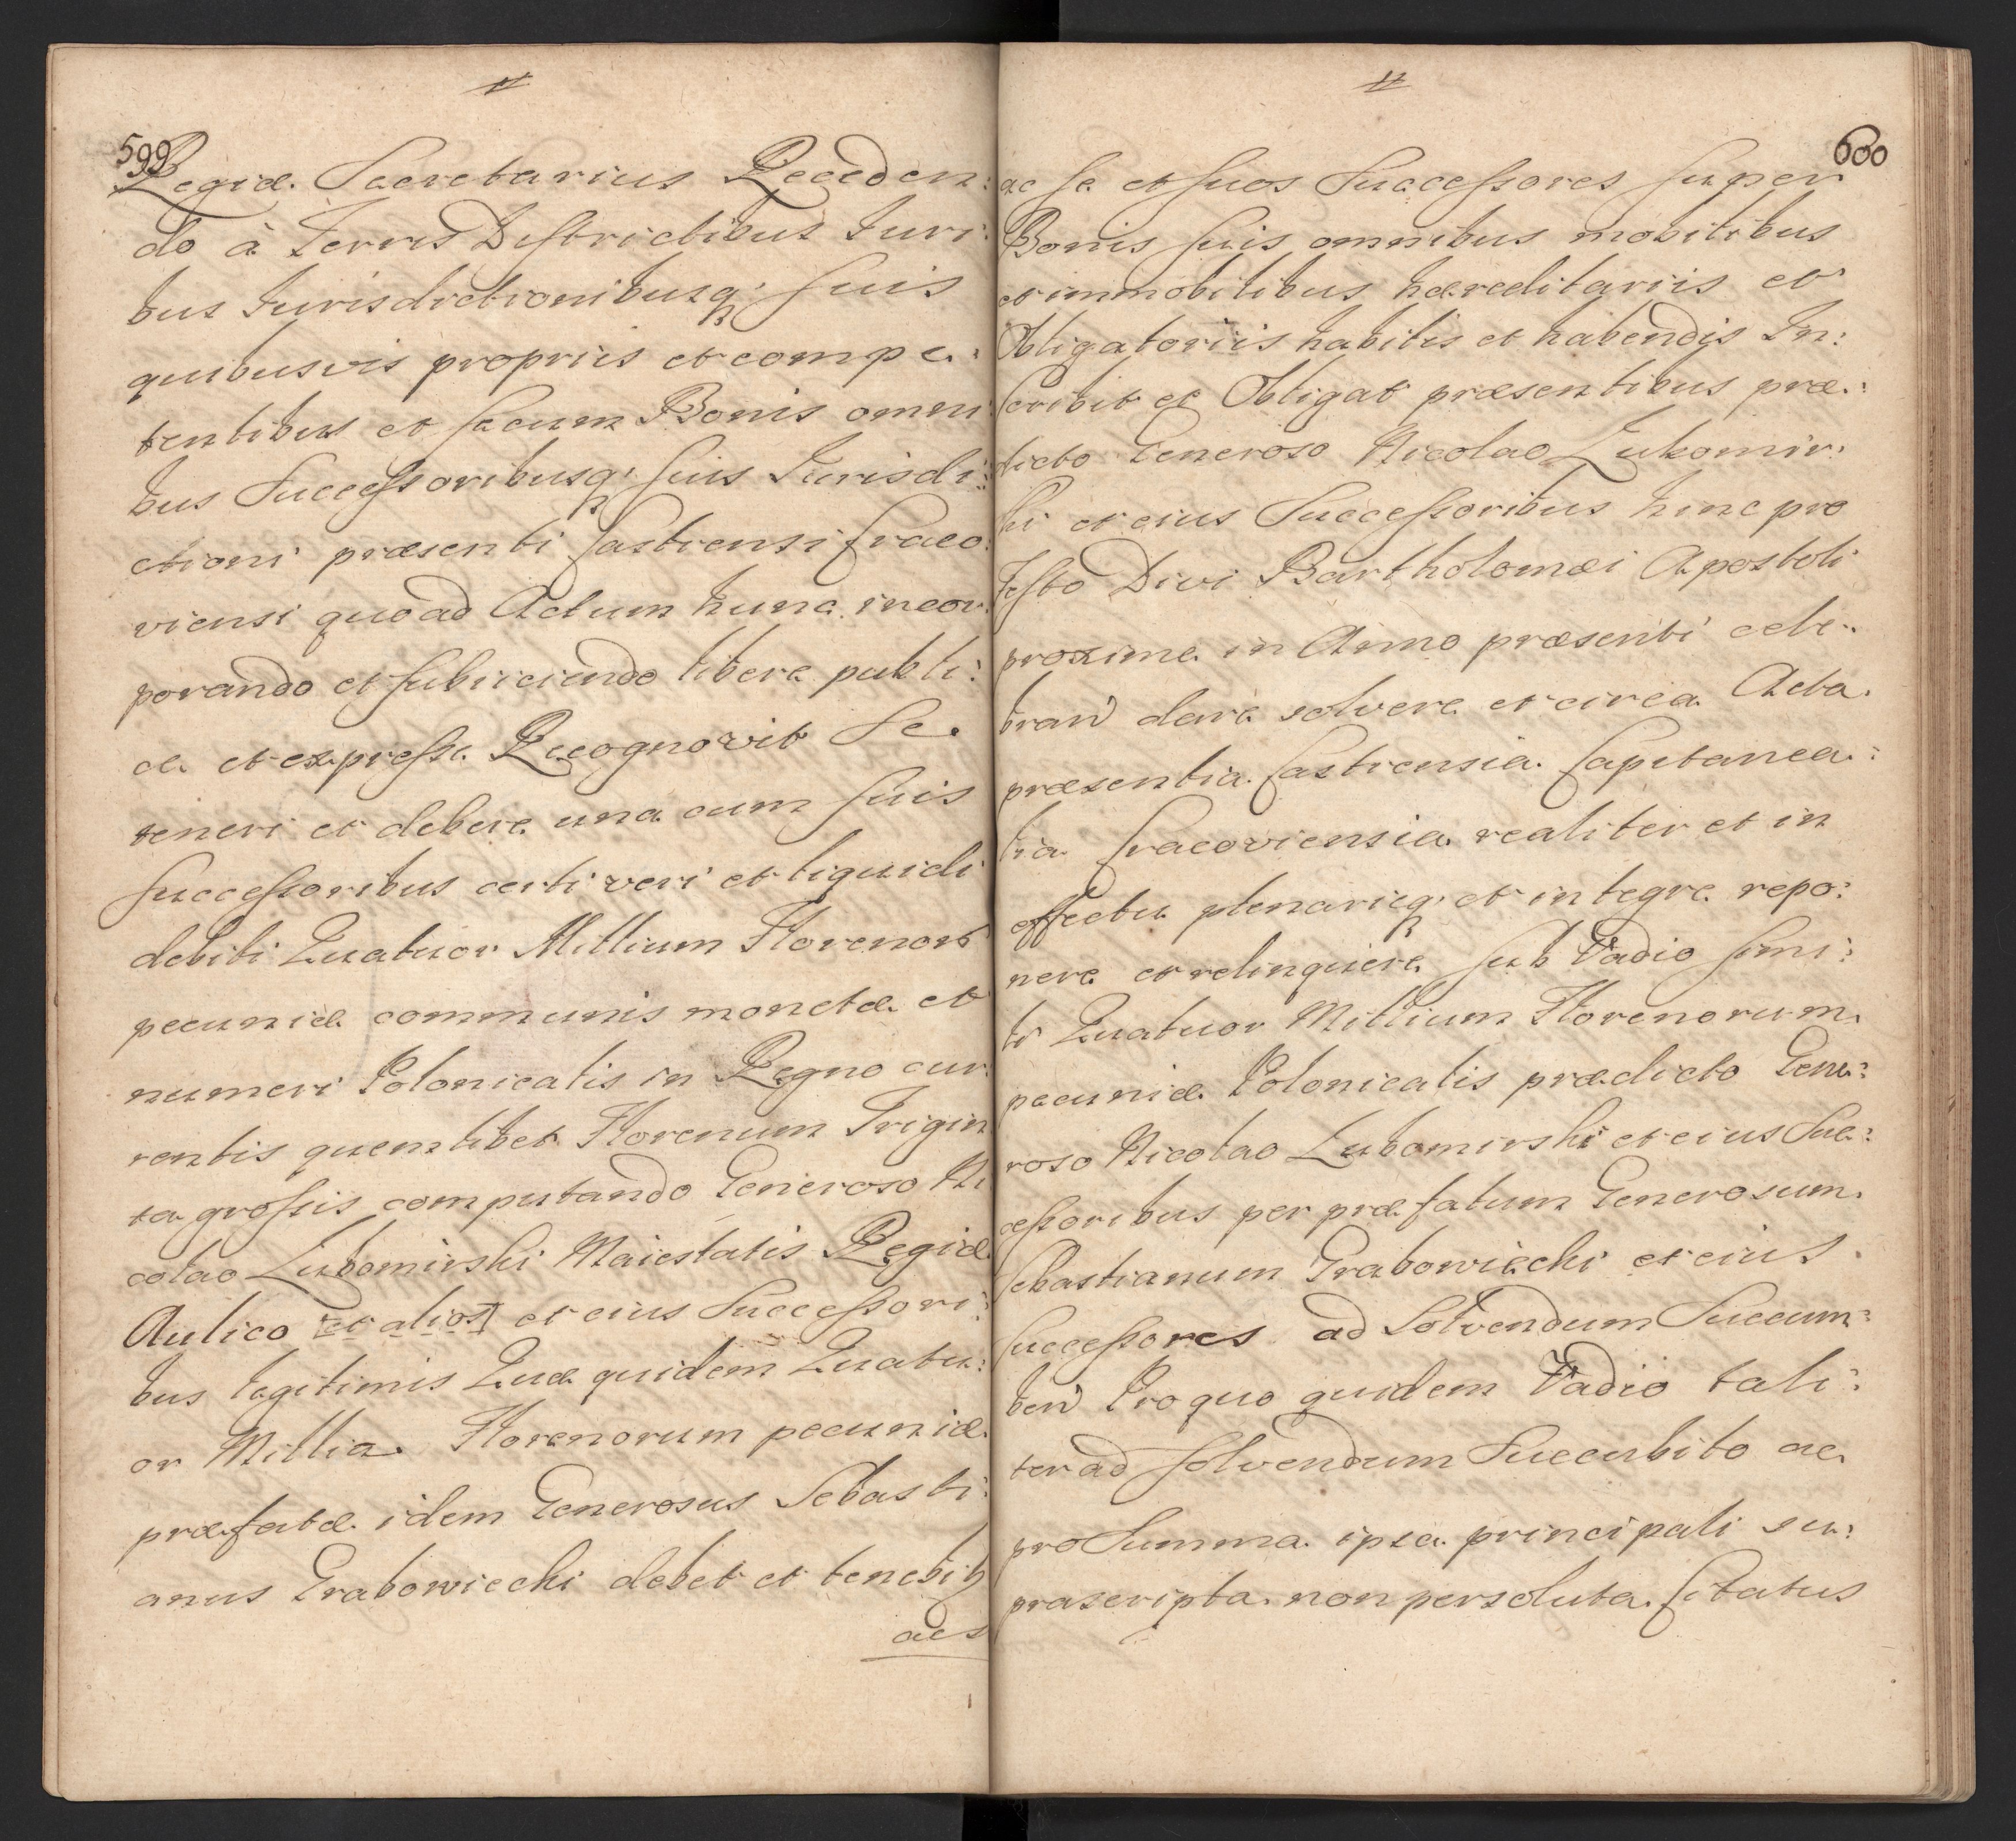 599
Regiæ Secretarius Receden:
do à Terris Districtibus Iuri:
bus Iurisdictionibusq; suis
quibusvis proprijs et compe:
tentibus et secum Bonis omni:
bus Successoribusq; suis Iurisdi:
ctioni præsenti Castrensi Craco:
viensi quoad Actum hunc incor:
porando et subijciendo libere publi:
ce et expresse Recognovit Se
teneri et debere una cum suis
successoribus certi veri et liquidi
debiti Quatuor Millium Florenor
pecuniæ communis monetæ et
numeri Polonicalis in Regno cur:
rentis quemlibet Florenum Trigin
ta grossis computando Generoso Ni
colao Lubomirski Maiestatis Regiæ
Aulico [et alios] et eius Successori:
bus legitimis Quæ quidem Quatu:
or Millia Florenorum pecuniæ
præfatæ idem Generosus Sebasti:
anus Grabowiecki debet et tenebit
ac s
600
ac se et suos Successores super
Bonis suis omnibus mobilibus
et immobilibus hæreditariis et
Obligatoriis habitis et habendis In:
scribit et Obligat præsentibus præ:
dicto Generoso Nicolao Lubomir:
ski et eius Successoribus hinc pro
Festo Divi Bartholomæi Apostoli
proxime in Anno præsenti cele:
bran dare solvere et circa Acta
præsentia Castrensia Capitanea:
lia Cracoviensia realiter et in
effectu plenarieq; et integre repo:
nere et relinquere sub Vadio simi:
li Quatuor Millium Florenorum
pecuniæ Polonicalis prædicto Gene:
roso Nicolao Lubomirski et eius Suc:
cessoribus per præfatum Generosum
Sebastianum Grabowiecki et eius
successores ad Solvendum Succum:
ben Pro quo quidem Vadio tali:
ter ad solvendum Succubito ac
pro Summa ipsa principali su:
prascripta non persoluta Citatus